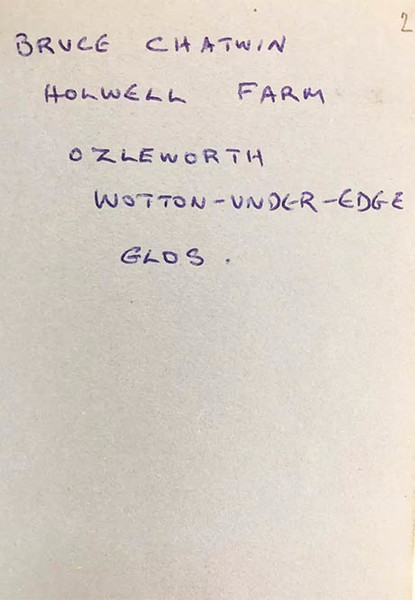 2
BRUCE CHATWIN
HOLWELL FARM
OZLEWORTH
WOTTON-UNDER-EDGE
GLOS.